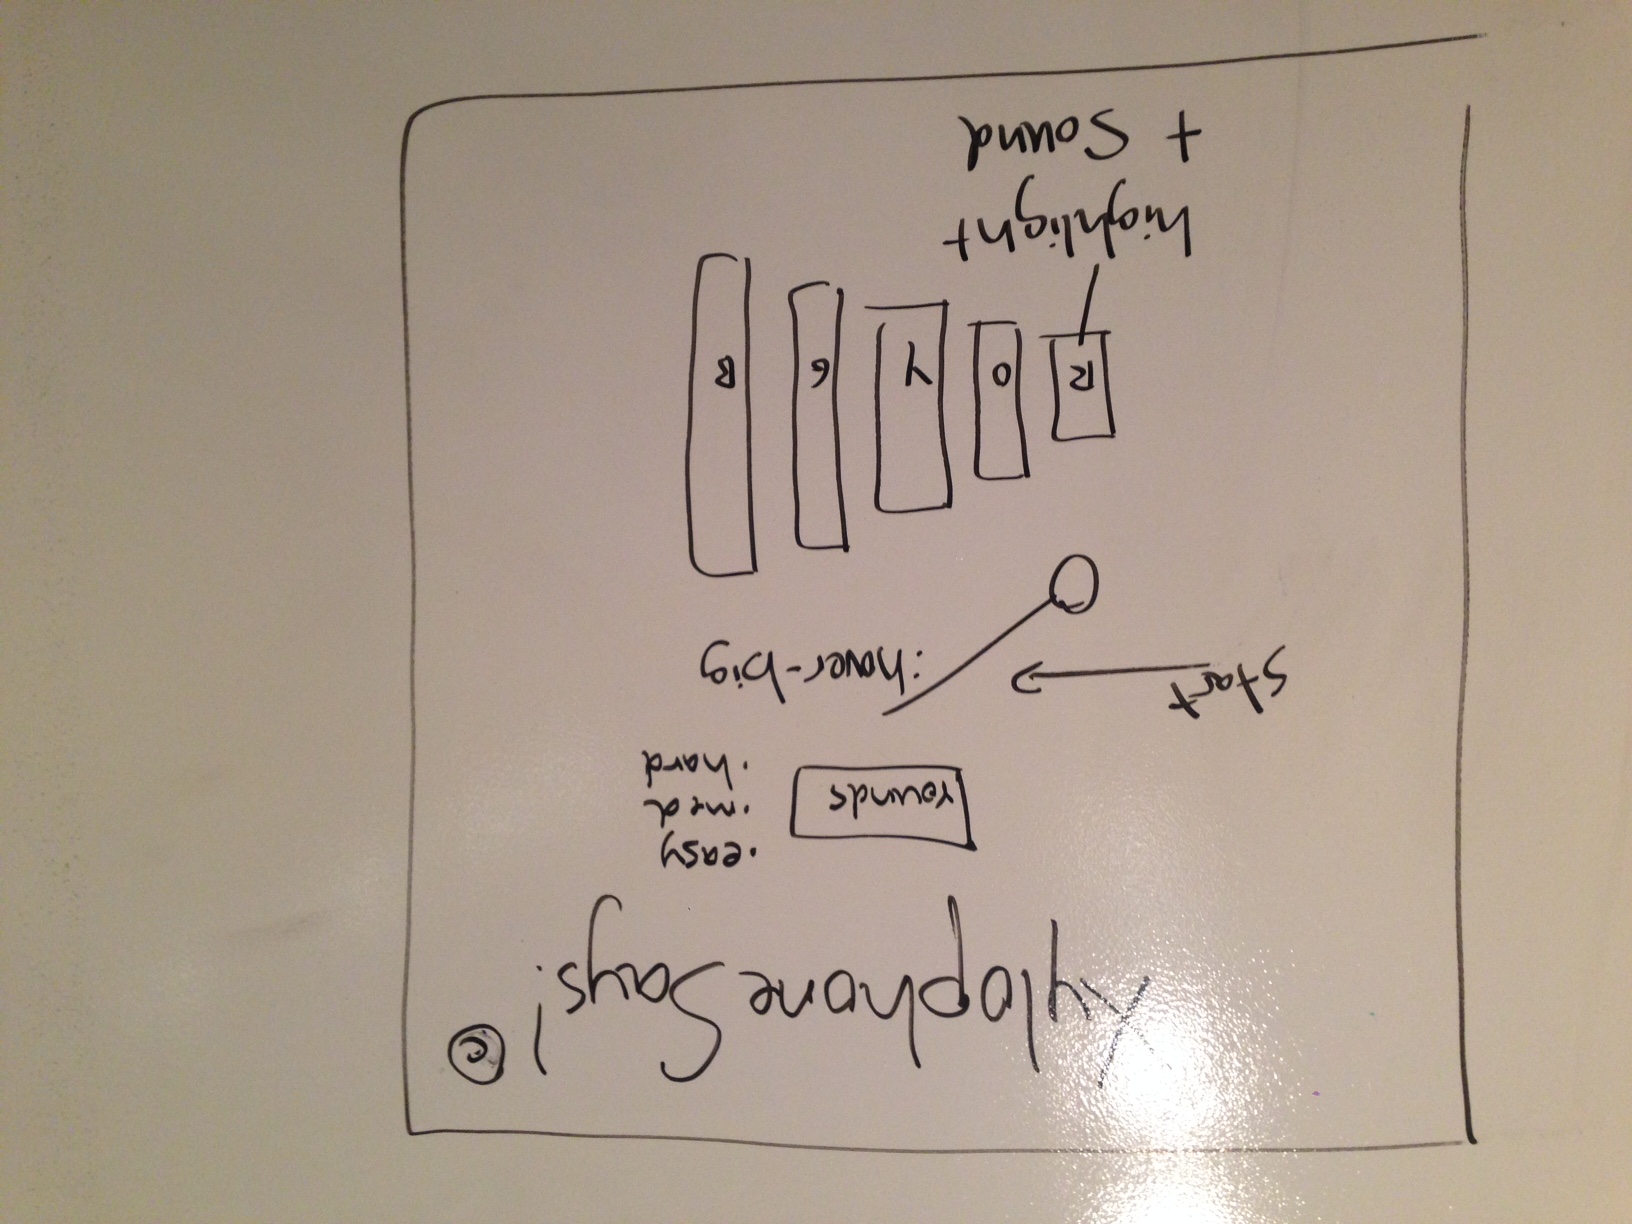 Xylophone Says! ©
rounds
• easy
• med
• hard
start
:hover-big
R O Y G B
highlight
+ Sound